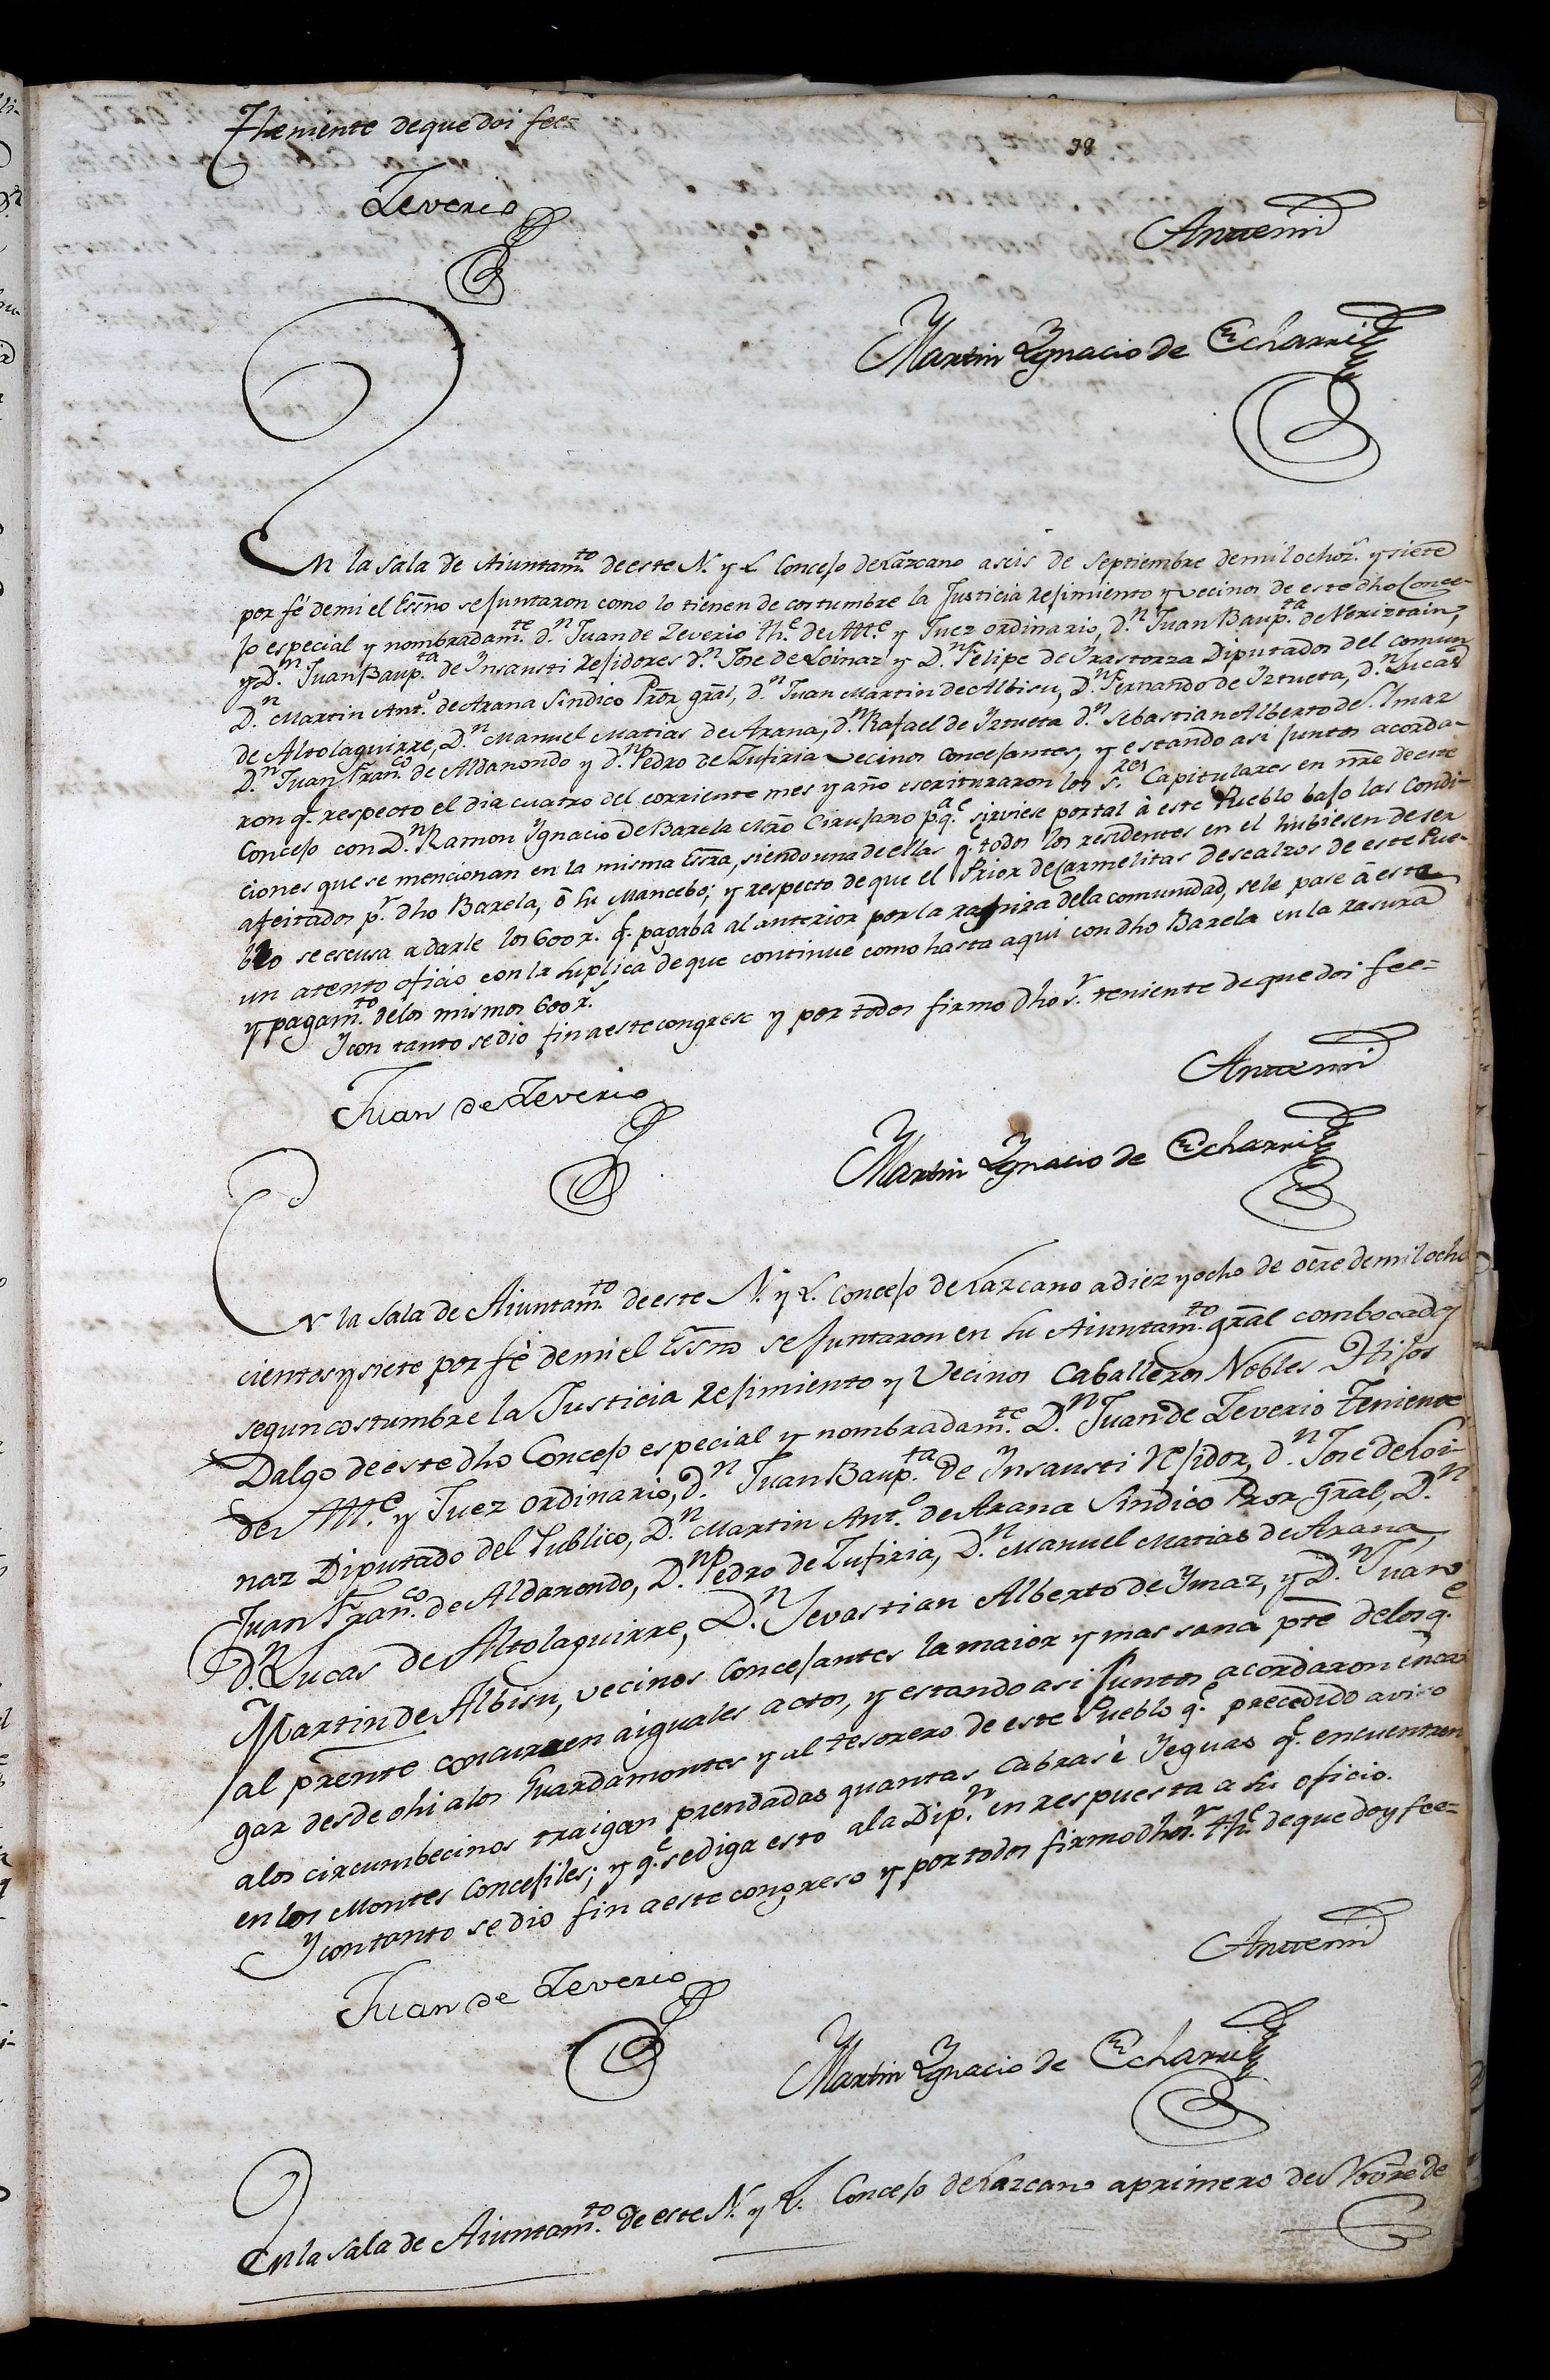 Theniente de que doi fee=
98
Zeverio
Antemi
Martin Ygnacio de Echarri
En la sala de Aiuntam.to de este N. y L. Concejo de Lazcano a seis de Septiembre de mil ochoz.s y siete
por fé de mi el Essno se juntaron como lo tienen de costumbre la Justicia Rejimiento y vecinos de este dho Conce-
jo especial y nombradam.te d.n Juan de Zeverio th.e de Alc.e y Juez ordinario, d.n Juan Baup.ta de Neriztain,
y D.n Juan Baup.ta de Ynsausti Rejidores d.n Jose de Loinaz y D.n Felipe de Yrastorza Diputados del comun
D.n Martin Ant.o de Arana Sindico Pror gral, d.n Juan Martin de Albisu, D.n Fernando de Yztueta, d.n Lucas
de Altolaguirre, D.n Manuel Matias de Arana, d.n Rafael de Yztueta d.n Sebastian Alberto de Ymaz
D.n Juan Fran.co de Aldanondo y d.n Pedro de Zufiria vecinos concejantes, y estando asi juntos acorda-
ron q.e respecto el dia cuatro del corriente mes y año escrituraron los s.res Capitulares en nre de este
Concejo con D.n Ramon Ygnacio de Barela Mro Cirujano p.a q.e sirviese por tal à este Pueblo bajo las Condi-
ciones que se mencionan en la misma Essra, siendo una de ellas q.e todos los residentes en el hubiesen de ser
afeitados p.r dho Barela, ô su Mancebo; y respecto de que el Prior de Carmelitas descalzos de este Pue-
blo se escusa a darle los 600 r.s q.e pagaba al anterior por la rasura de la comunidad, se le pase à este
un atento oficio con la suplica de que continue como hasta aqui con dho Barela en la rasura
y pagam.to de los mismos 600 r.s
Y con tanto se dio fin a este congreso y por todos firmo dho s.r teniente de que doi fee=
Juan de Zeverio
Antemi
Martin Ygnacio de Echarri
En la Sala de Aiuntam.to de este N. y L. Concejo de Lazcano a diez y ocho de ôcre de mil ocho
cientos y siete por fé de mi el Essno se juntaron en su Aiuntam.to gral combocados
segun costumbre la Justicia Rejimiento y Vecinos Caballeros Nobles Hijos
Dalgo de este dho Concejo especial y nombradam.te D.n Juan de Zeverio Teniente
de Alc.e y Juez ordinario, d.n Juan Baup.ta de Ynsausti Rejidor, d.n Jose de Loi-
naz Diputado del Publico, D.n Martin Ant.o de Arana Sindico Pror Gral, D.n
Juan Fran.co de Aldanondo, D.n Pedro de Zufiria, D.n Manuel Matias de Arana
d.n Lucas de Altolaguirre, D.n Sevastian Alberto de Ymaz, y D.n Juan
Martin de Albisu, vecinos Concejantes la maior y mas sana pte de los q.e
al prente concurren à iguales actos, y estando asi juntos acordaron encar
gar desde ohi a los Guardamontes y al tesorero de este Pueblo q.e precedido aviso
a los circumbecinos traigan prendadas quantas Cabras è Yeguas q.e encuentren
en los Montes Concejiles; y q.e se diga esto a la Dip.n en respuesta a su oficio.
Y con tanto se dio fin a este congreso y por todos firmo dho s.r th.e de que doy fee=
Juan de Zeverio
Antemi
Martin Ygnacio de Echarri
En la sala de Aiuntam.to de este N. y L. Concejo de Lazcano a primero de Nobre de